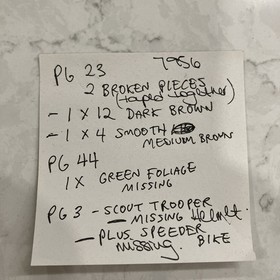 PG 23 7956
2 BROKEN PIECES
(taped together)
- 1 X 12 DARK BROWN
- 1 X 4 SMOOTH
MEDIUM BROWN
PG 44
1X GREEN FOLIAGE
MISSING
PG 3 - SCOUT TROOPER
MISSING Helmet.
- PLUS SPEEDER
missing. BIKE